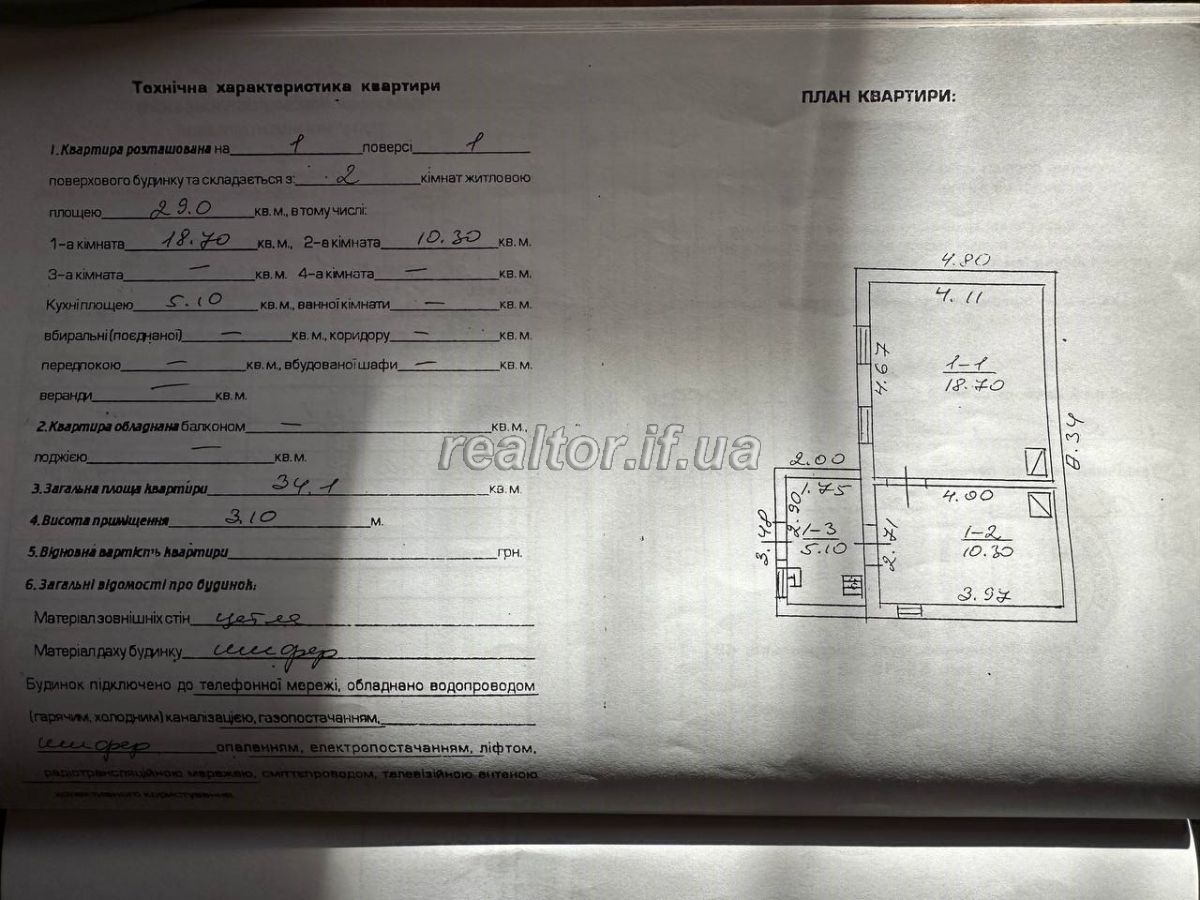 Технічна характеристика квартири
1. Квартира розташована на 1 поверсі 1
поверхового будинку та складається з: 2 кімнат житловою
площею 29.0 кв. м., в тому числі:
1-а кімната 18.70 кв. м., 2-а кімната 10.30 кв. м.
3-а кімната — кв. м. 4-а кімната — кв. м.
Кухні площею 5.10 кв. м., ванної кімнати — кв. м.
вбиральні (поєднаної) — кв. м., коридору — кв. м.
передпокою — кв. м., вбудованої шафи — кв. м.
веранди — кв. м.
2. Квартира обладнана балконом — кв. м.,
лоджією — кв. м.
3. Загальна площа квартири 34.1 кв. м.
4. Висота приміщення 3.10 м.
5. Відновна вартість квартири грн.
6. Загальні відомості про будинок:
Матеріал зовнішніх стін цегла
Матеріал даху будинку шифер
Будинок підключено до телефонної мережі, обладнано водопроводом
(гарячим, холодним) каналізацією, газопостачанням,
шифер опаленням, електропостачанням, ліфтом,
радіотрансляційною мережею, сміттєпроводом, телевізійною антеною
колективного користування.
ПЛАН КВАРТИРИ:
4.80
4.11
4.67
1-1
18.70
8.34
2.00
1.75
4.00
3.48
2.90
1-3
5.10
2.71
1-2
10.30
3.97
realtor.if.ua